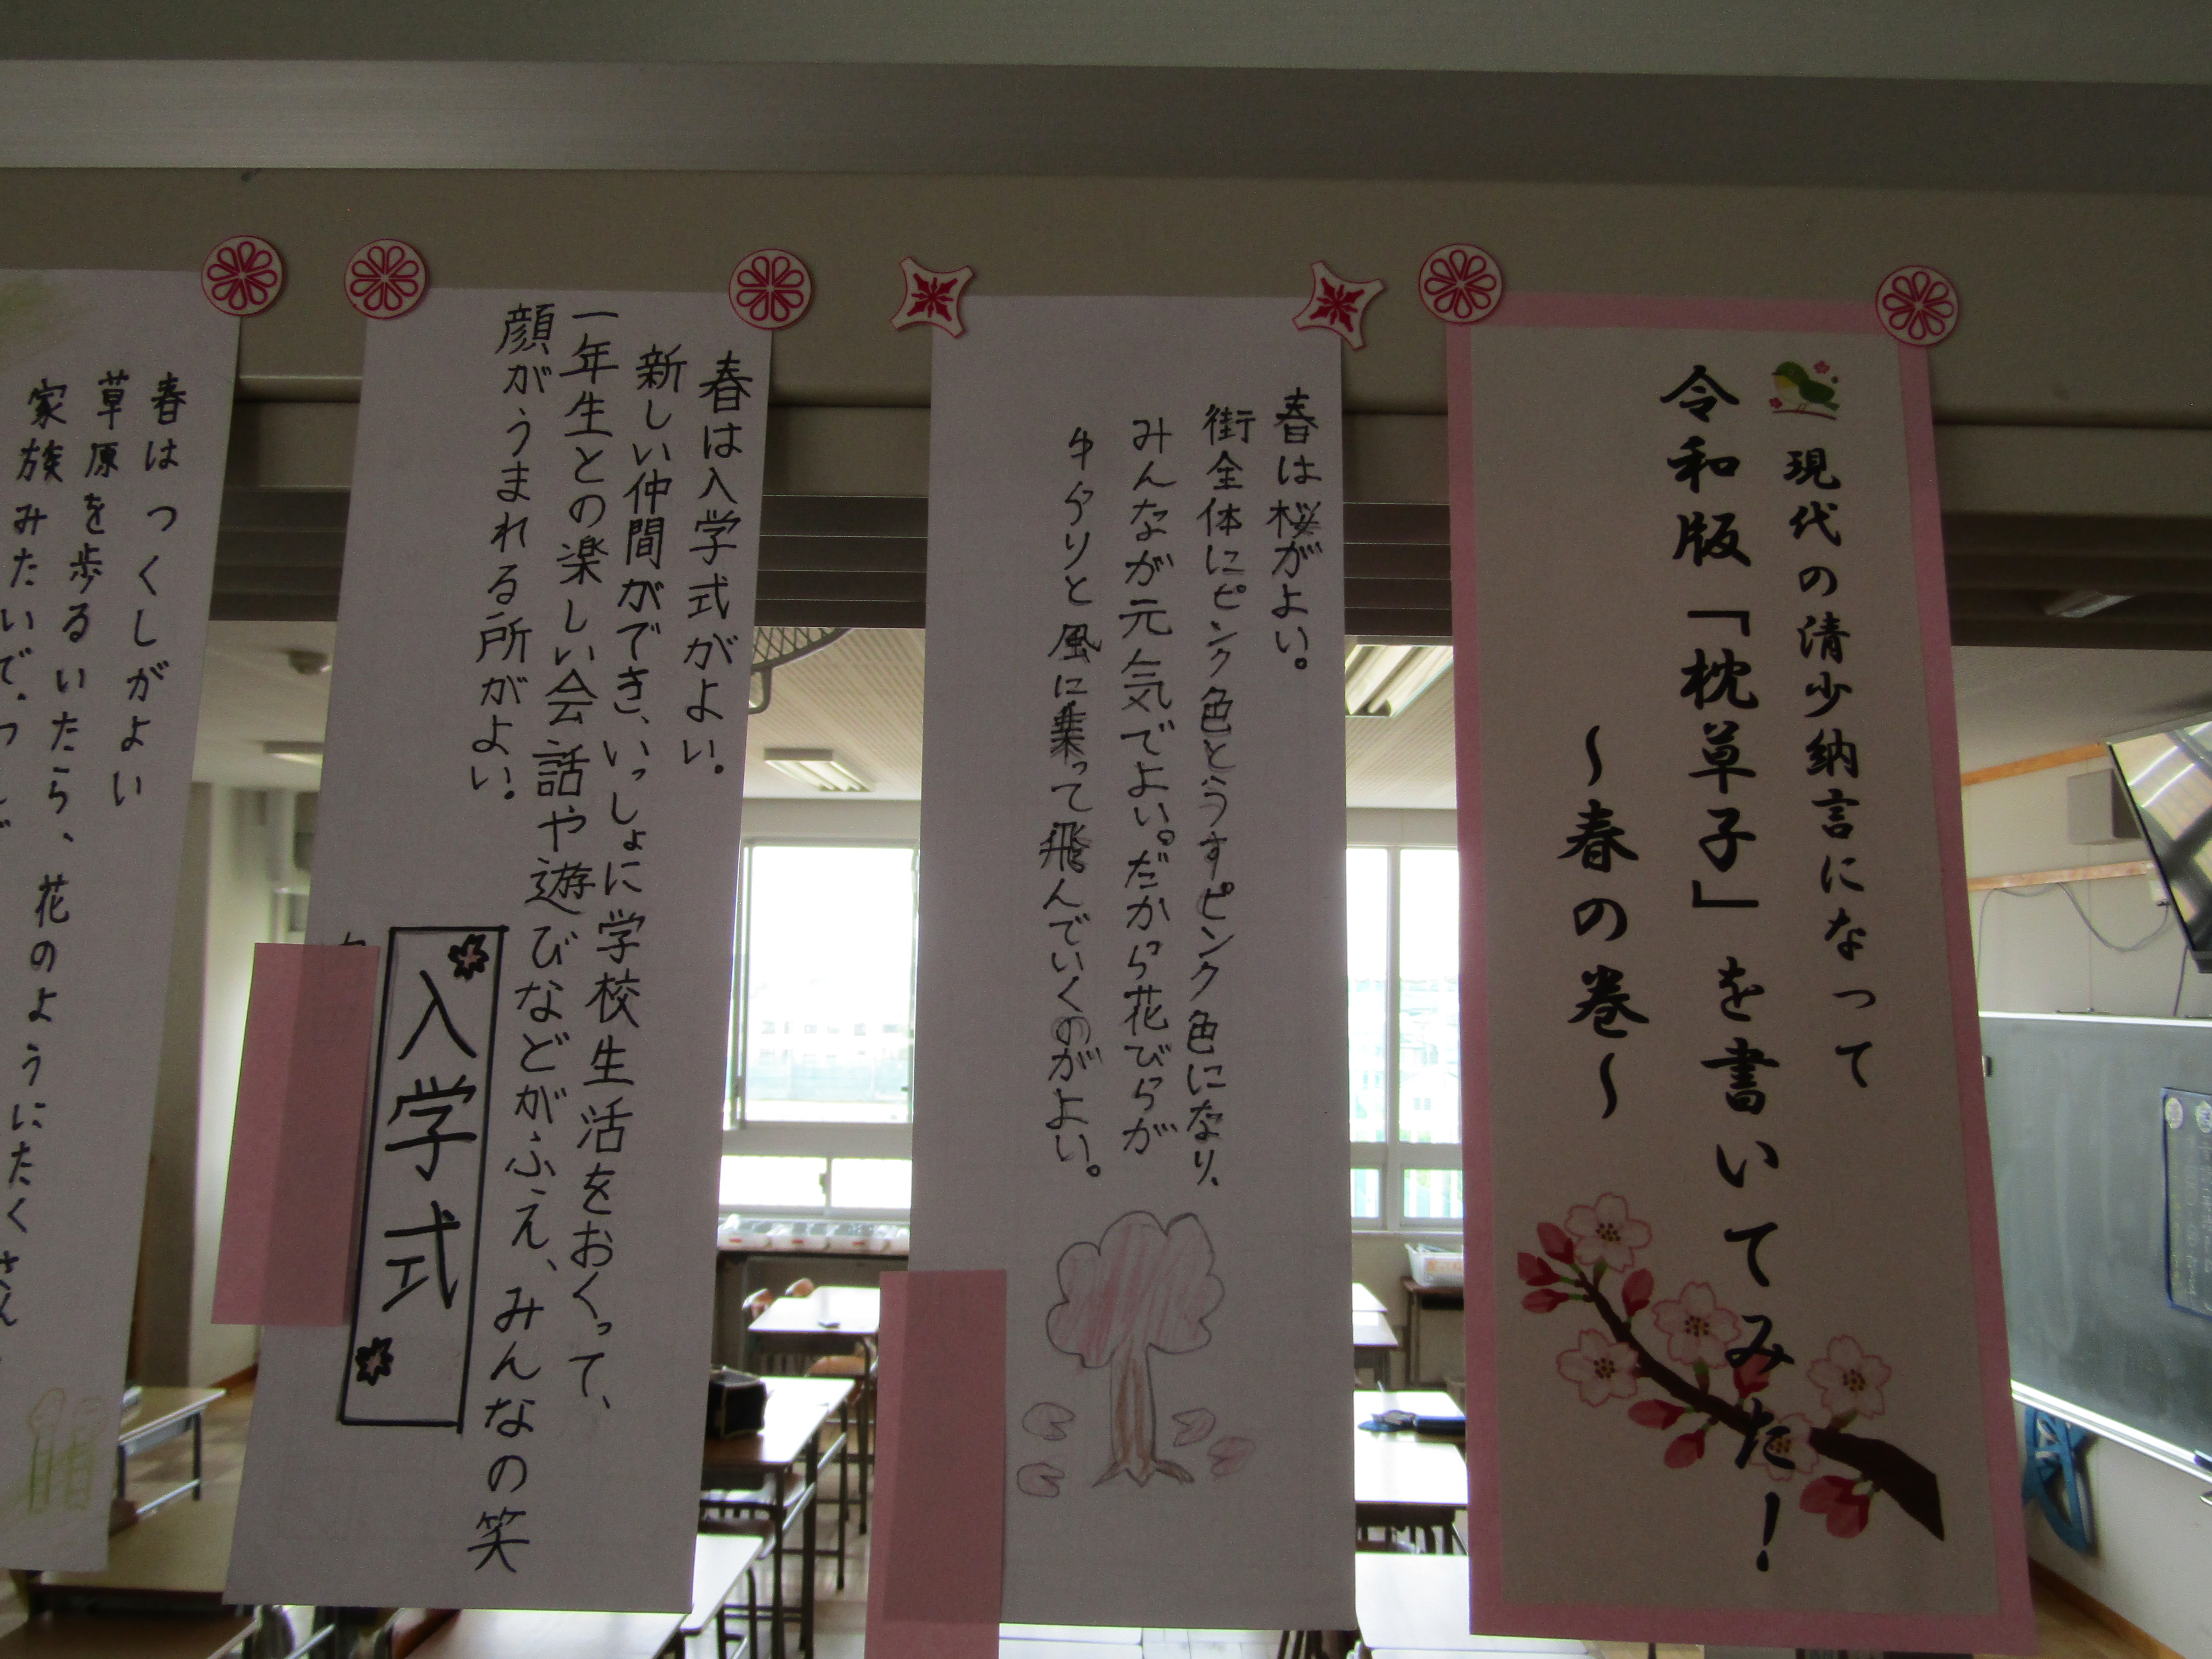 現代の清少納言になって
令和版「枕草子」を書いてみた！
～春の巻～
春は桜がよい。
街全体にピンク色とうすピンク色になり、
みんなが元気でよい。だから花びらが
ゆらりと風に乗って飛んでいくのがよい。
春は入学式がよい。
新しい仲間ができ、いっしょに学校生活をおくって、
一年生との楽しい会話や遊びなどがふえ、みんなの笑
顔がうまれる所がよい。
入学式
春はつくしがよい
草原を歩るいたら、花のようにたくさん
家族みたいで。